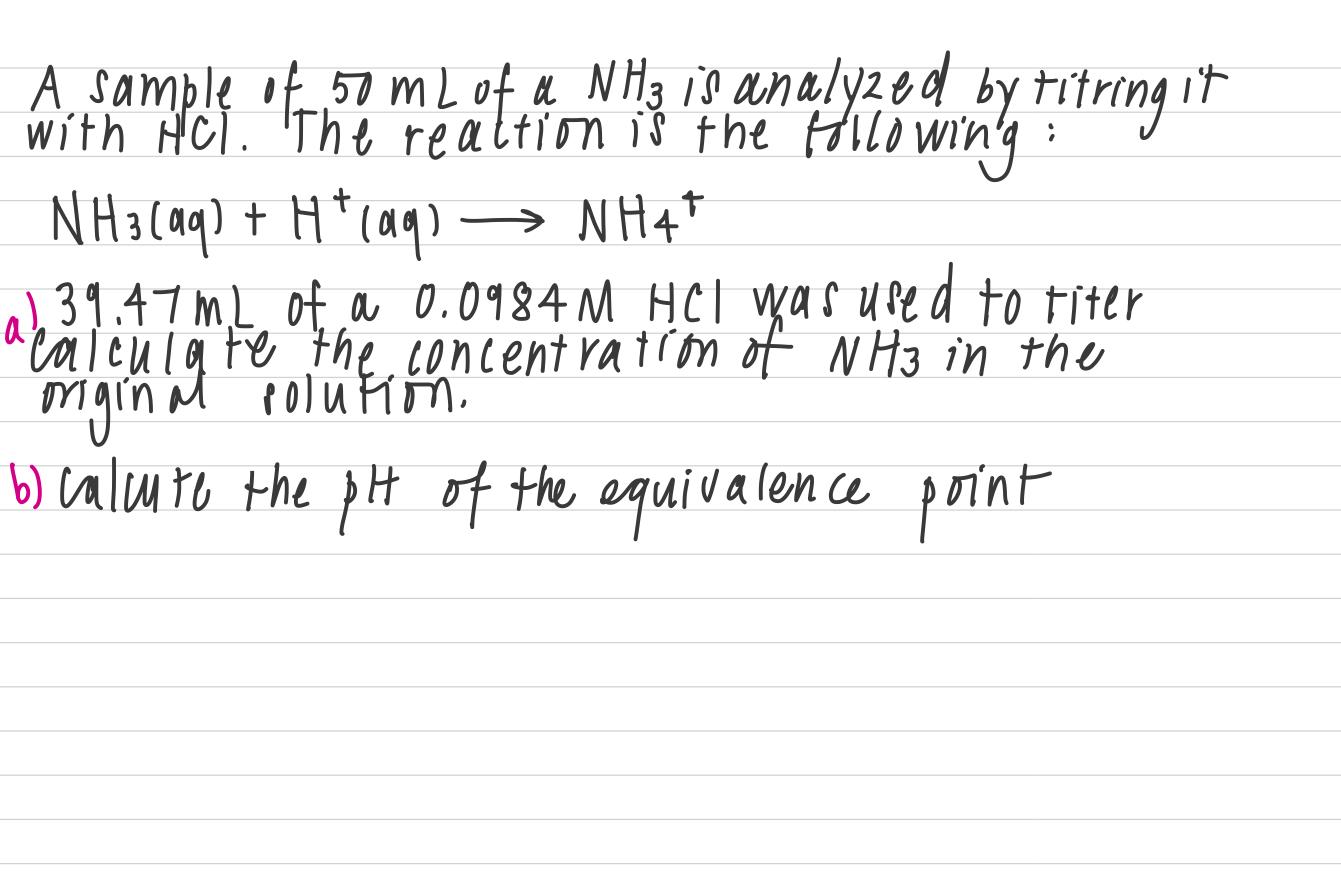 A sample of 50 mL of a NH3 is analyzed by titring it
with HCl. The reaction is the following :
NH3(aq) + H+(aq) → NH4+
a) 39.47mL of a 0.0984M HCl was used to titer
calculate the concentration of NH3 in the
original solution.
b) calcute the pH of the equivalence point